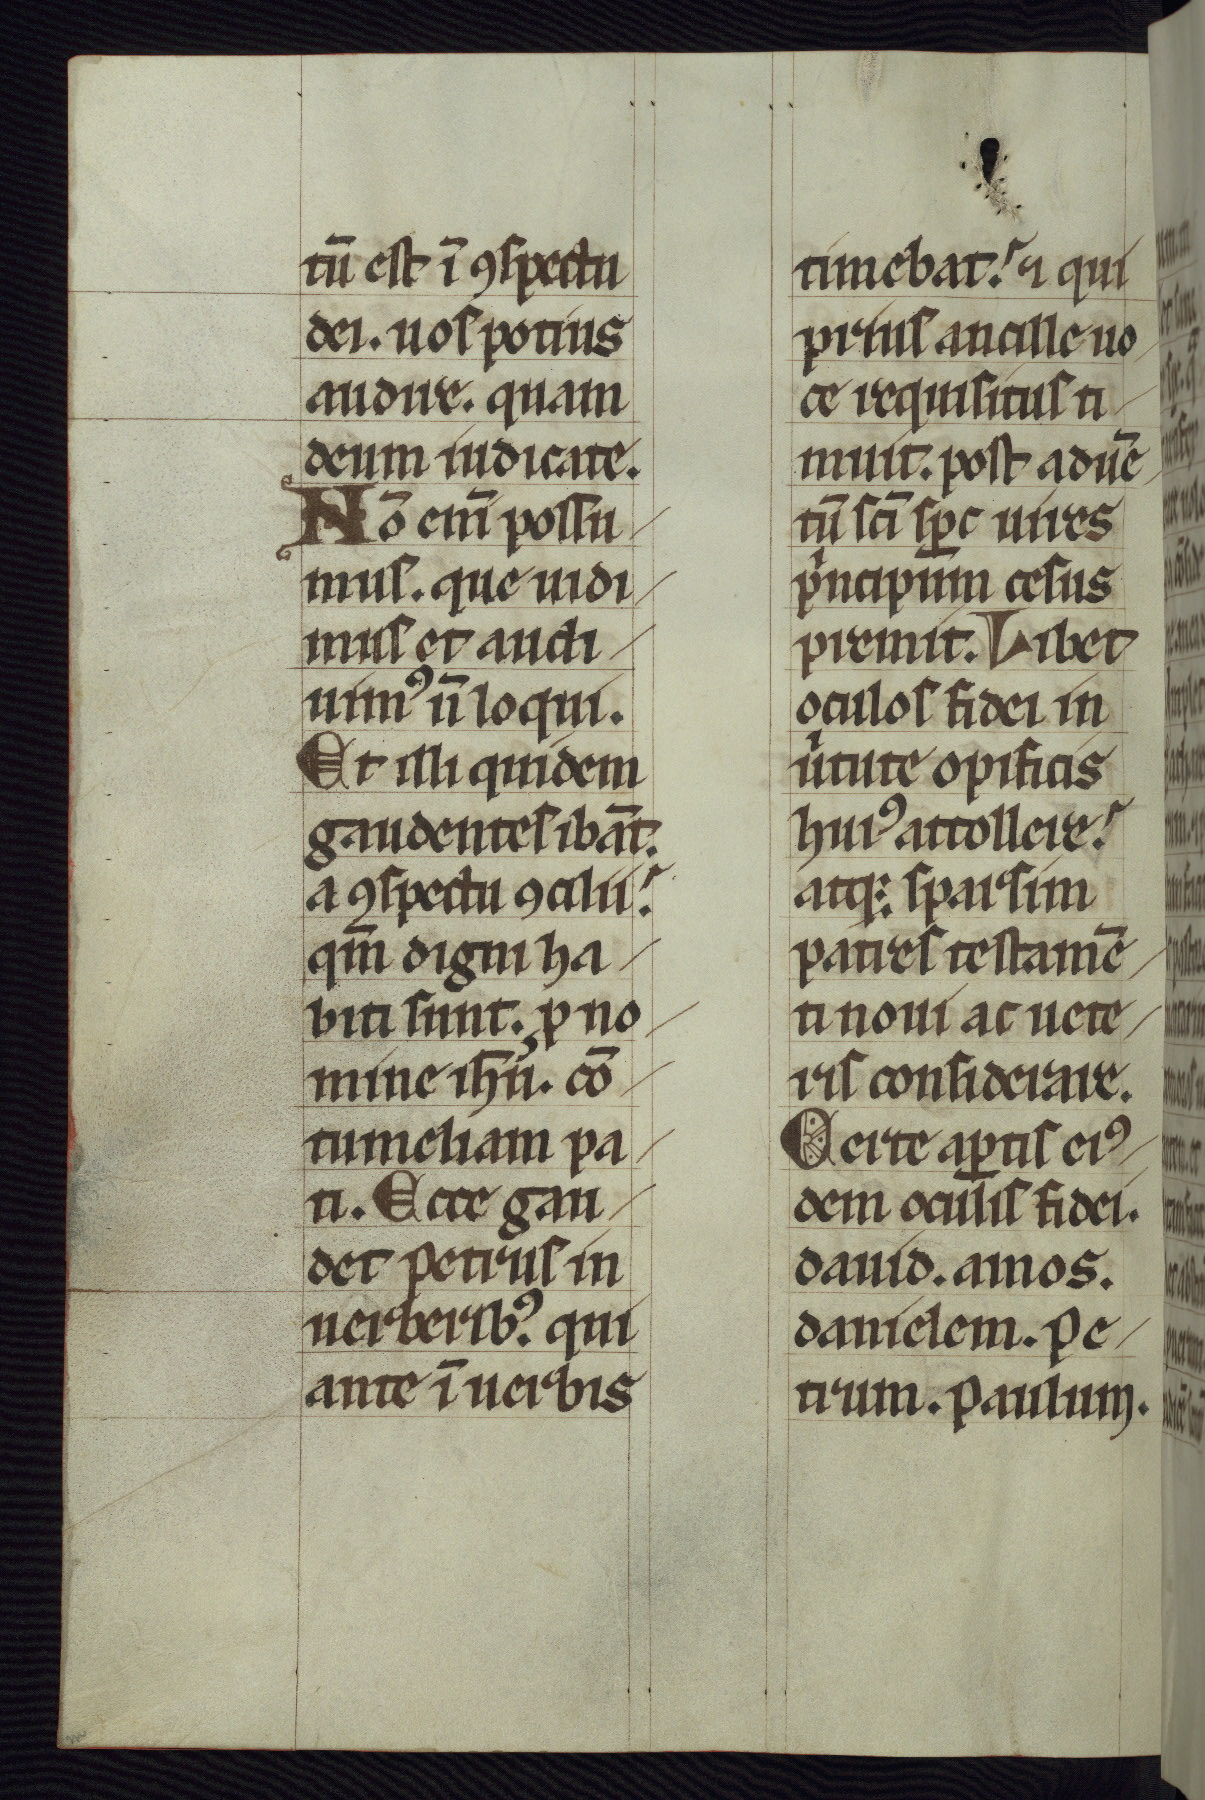 tū est ī ꝯspectu
dei. uos potius
audire. quam
deum iudicate.
Nō enī possu
mus. que uidi
mus et audi
uimꝰ n̄ loqui.
Et illi quidem
gaudentes ibāt.
a ꝯspectu ꝯcilii.
qm̄ digni ha
biti sunt. ꝓ no
mine ih̄u. cō
tumeliam pa
ti. Ecce gau
det petrus in
uerberibꝰ. qui
ante ī uerbis
timebat. ⁊ qui
prius ancille uo
ce requisitus ti
muit. post aduē
tū scī sp̄c uires
pͥncipum cesus
premit. Libet
oculos fidei in
uͥtute opificis
huiꝰ attollere.
atq; sparsim
patres testamē
ti noui ac uete
ris considerare.
Certe aꝑtis eiꝰ
dem ocul̄is fidei.
dauid. amos.
danielem. pe
trum. paulum.